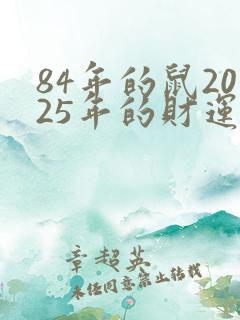 84年的鼠20
25年的财運
章超英
未经同意禁止转载